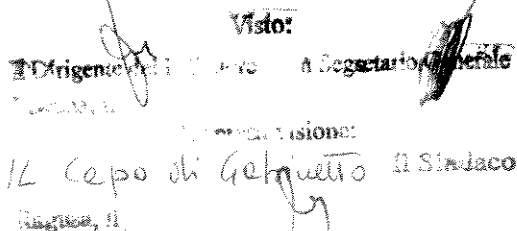 Visto:
Il Dirigente del Settore Il Segretario Generale
visione:
IL Capo di Gabinetto Il Sindaco
Ragusa, lì